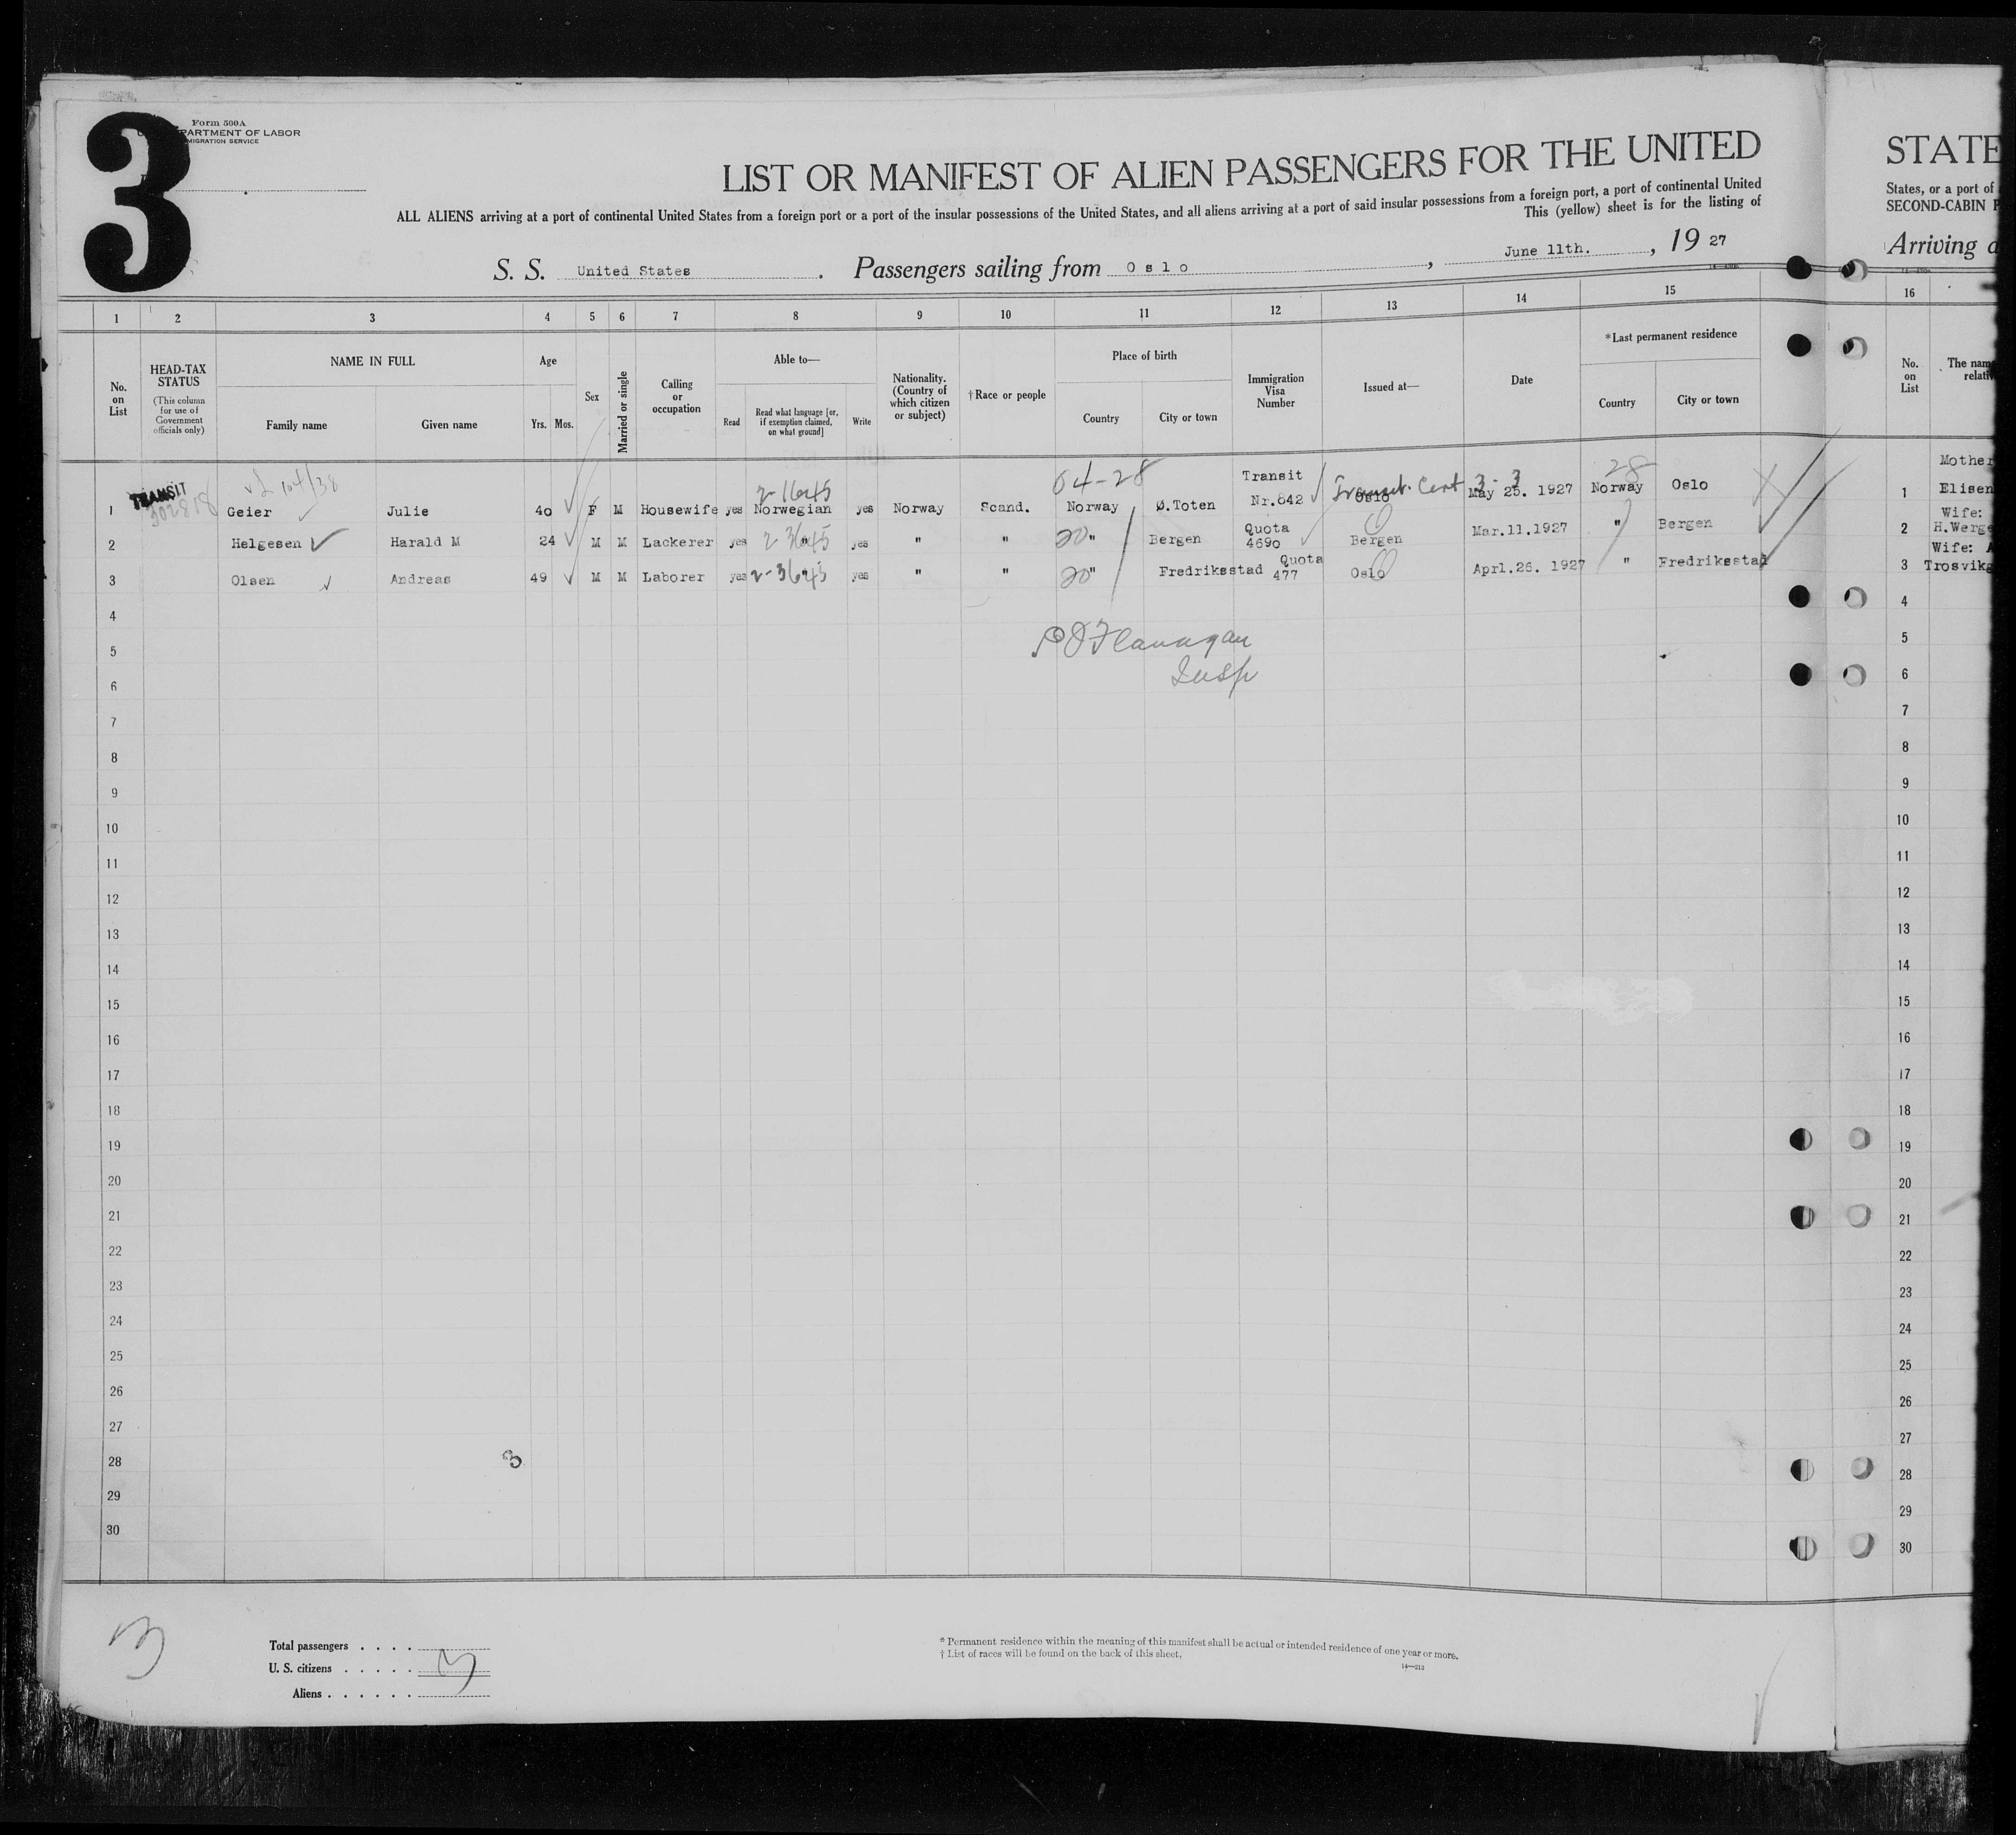 3
Form 500A
PARTMENT OF LABOR
MIGRATION SERVICE
LIST OR MANIFEST OF ALIEN PASSENGERS FOR THE UNITED
ALL ALIENS arriving at a port of continental United States from a foreign port or a port of the insular possessions of the United States, and all aliens arriving at a port of said insular possessions from a foreign port, a port of continental United
This (yellow) sheet is for the listing of
S. S. United States. Passengers sailing from Oslo, June 11th., 1927
1 2 3 4 5 6 7 8 9 10 11 12 13 14 15
No. on List
HEAD-TAX STATUS
(This column for use of Government officials only)
NAME IN FULL
Family name Given name
Age
Yrs. Mos.
Sex
Married or single
Calling or occupation
Able to—
Read Read what language [or, if exemption claimed, on what ground] Write
Nationality. (Country of which citizen or subject)
†Race or people
Place of birth
Country City or town
Immigration Visa Number
Issued at—
Date
*Last permanent residence
Country City or town
TRANSIT 104/38 2-1645 64-28 Transit Transit Cert 3-3 28
1 Geier Julie 40 F M Housewife yes Norwegian yes Norway Scand. Norway Ø.Toten Nr.842 Oslo May 25. 1927 Norway Oslo
2 Helgesen Harald M 24 M M Lackerer yes " 2-3645 yes " " 20 " Bergen Quota 4690 Bergen Mar.11.1927 " Bergen
3 Olsen Andreas 49 M M Laborer yes " 2-3645 yes " " 20 " Fredriksstad Quota 477 Oslo Aprl.26. 1927 " Fredriksstad
Flanagan
Insp
4
5
6
7
8
9
10
11
12
13
14
15
16
17
18
19
20
21
22
23
24
25
26
27
28 3
29
30
3
Total passengers . . . .
U. S. citizens . . . . . 3
Aliens . . . . . .
* Permanent residence within the meaning of this manifest shall be actual or intended residence of one year or more.
† List of races will be found on the back of this sheet.
14—213
STATE
States, or a port of
SECOND-CABIN P
Arriving a
16
No. on List
The nam
relati
Mother
1 Elisen
Wife:
2 H.Werge
Wife: A
3 Trosvik
4
5
6
7
8
9
10
11
12
13
14
15
16
17
18
19
20
21
22
23
24
25
26
27
28
29
30